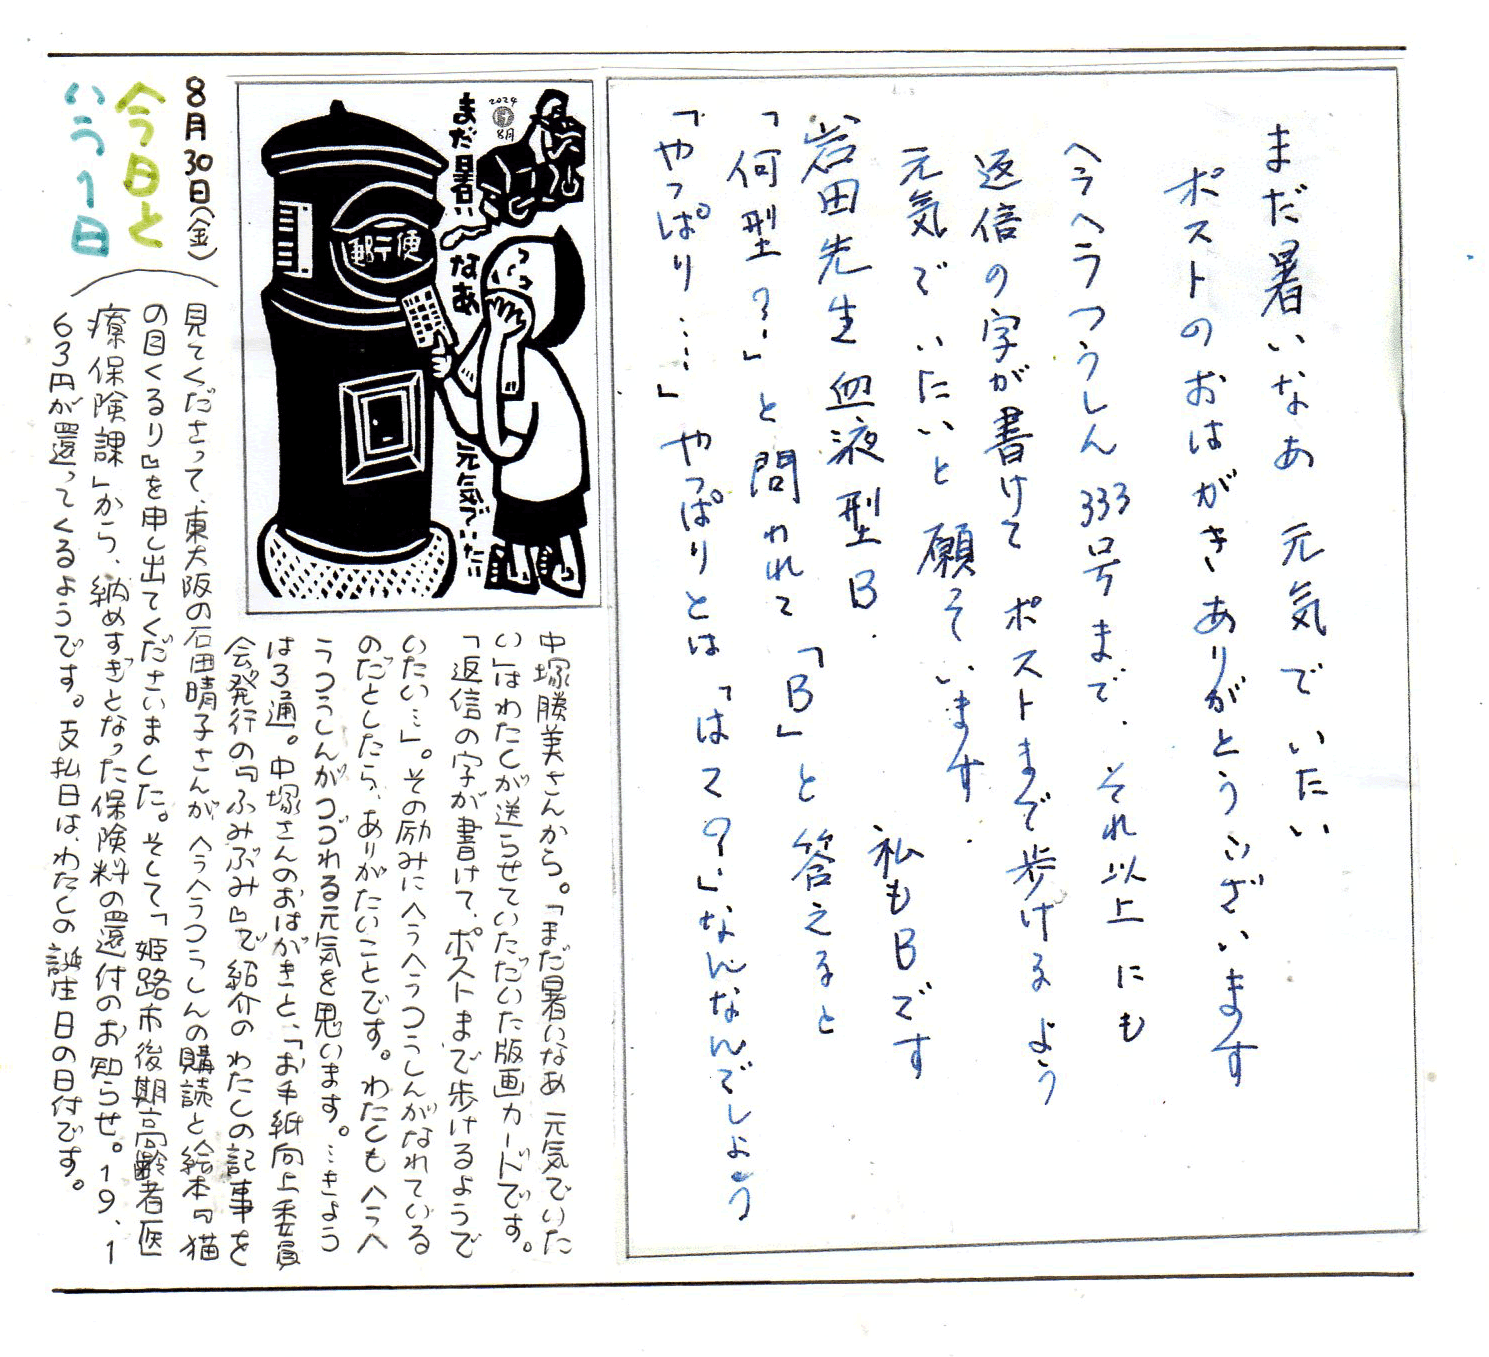 8月30日(金)
今日と
いう1日
まだ暑いなあ 元気でいたい
ポストのおはがきありがとうございます
ヘラヘラつうしん333号まで. それ以上にも
返信の字が書けて ポストまで歩けるよう
元気で いたいと願っています.
岩田先生 血液型B. 私もBです
「何型?」と問われて「B」と答えると
「やっぱり……」やっぱりとは「はて?」なんなんでしょう
2024
8月
まだ暑いなあ
元気でいたい
郵便
中塚勝美さんから。「まだ暑いなあ 元気でいた
い」はわたしが送らせていただいた版画カードです。
「返信の字が書けて、ポストまで歩けるようで
いたい…」。その励みにヘラヘラつうしんがなれている
のだとしたら、ありがたいことです。わたしもヘラヘ
ラつうしんがつづれる元気を思います。…きょう
は3通。中塚さんのおはがきと、「お手紙向上委員
会発行の『ふみぶみ』で紹介のわたしの記事を
見てくださって、東大阪の石田晴子さんが、ヘラヘラつうしんの購読と絵本『猫
の目くるり』を申し出てくださいました。そして「姫路市後期高齢者医
療保険課」から、納めすぎとなった保険料の還付のお知らせ。19,1
63円が還ってくるようです。支払日は、わたしの誕生日の日付です。